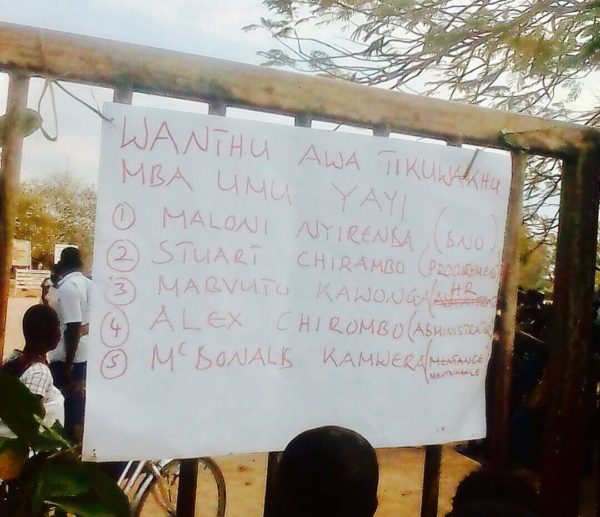 WANTHU AWA TIKUWAKHU
MBA UMU YAYI
① MALONI NYIRENDA (DNO)
② STUART CHIRAMBO (PROCUREMENT
③ MABVUTO KAWONGA (HR
④ ALEX CHIROMBO (ADMINISTRATO
⑤ McDONALD KAMWERA (MENTANCE
MENTAINANCE